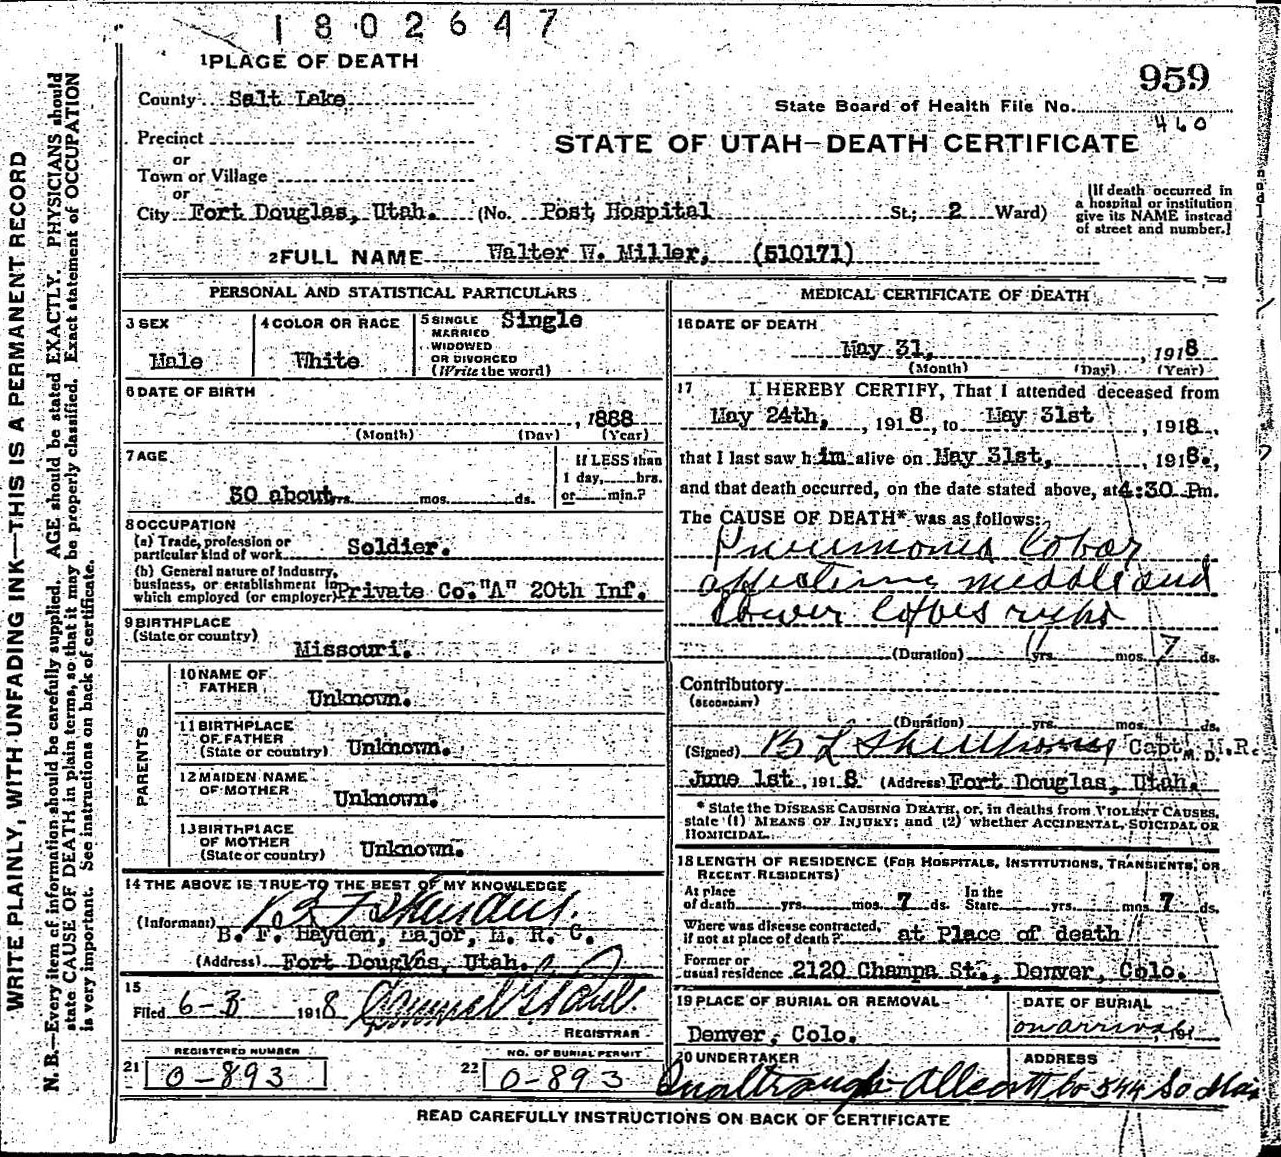 1802647
1 PLACE OF DEATH
959
County Salt Lake
State Board of Health File No.
460
Precinct
STATE OF UTAH—DEATH CERTIFICATE
or
Town or Village
or
City Fort Douglas, Utah. (No. Post Hospital St.; 2 Ward)
[If death occurred in
a hospital or institution
give its NAME instead
of street and number.]
2 FULL NAME Walter W. Miller, (510171)
PERSONAL AND STATISTICAL PARTICULARS
3 SEX
Male
4 COLOR OR RACE
White
5 SINGLE Single
MARRIED
WIDOWED
OR DIVORCED
(Write the word)
6 DATE OF BIRTH
, 1888
(Month) (Day) (Year)
7 AGE
30 about yrs. mos. ds.
If LESS than
1 day, hrs.
or min.?
8 OCCUPATION
(a) Trade, profession or
particular kind of work Soldier.
(b) General nature of Industry,
business, or establishment in
which employed (or employer) Private Co."A" 20th Inf.
9 BIRTHPLACE
(State or country)
Missouri.
PARENTS
10 NAME OF
FATHER
Unknown.
11 BIRTHPLACE
OF FATHER
(State or country) Unknown.
12 MAIDEN NAME
OF MOTHER
Unknown.
13 BIRTHPLACE
OF MOTHER
(State or country) Unknown.
14 THE ABOVE IS TRUE TO THE BEST OF MY KNOWLEDGE
(Informant)
B. F. Hayden, Major, M. R. C.
(Address) Fort Douglas, Utah.
15
Filed 6-3 1918
REGISTRAR
REGISTERED NUMBER
21 0-893
NO. OF BURIAL PERMIT
22 0-893
MEDICAL CERTIFICATE OF DEATH
16 DATE OF DEATH
May 31, , 1918
(Month) (Day) (Year)
17 I HEREBY CERTIFY, That I attended deceased from
May 24th, , 1918, to May 31st , 1918,
that I last saw him alive on May 31st, , 1918.,
and that death occurred, on the date stated above, at 4:30 Pm.
The CAUSE OF DEATH* was as follows:
Pneumonia lobar
affecting middle and
lower lobes right
(Duration) yrs. mos. 7 ds.
Contributory
(SECONDARY)
(Duration) yrs. mos. ds.
(Signed) B L Capt. M. D. R.
June 1st , 1918 (Address) Fort Douglas, Utah.
* State the DISEASE CAUSING DEATH, or, in deaths from VIOLENT CAUSES,
state (1) MEANS OF INJURY; and (2) whether ACCIDENTAL, SUICIDAL OR
HOMICIDAL.
18 LENGTH OF RESIDENCE (FOR HOSPITALS, INSTITUTIONS, TRANSIENTS, OR
RECENT RESIDENTS)
At place
of death yrs. mos. 7 ds. In the
State yrs. mos. 7 ds.
Where was disease contracted,
if not at place of death? at Place of death
Former or
usual residence 2120 Champa St., Denver, Colo.
19 PLACE OF BURIAL OR REMOVAL
Denver, Colo.
DATE OF BURIAL
on arrival, 191
20 UNDERTAKER
ADDRESS
544 So Main
READ CAREFULLY INSTRUCTIONS ON BACK OF CERTIFICATE
WRITE PLAINLY, WITH UNFADING INK—THIS IS A PERMANENT RECORD
N. B.—Every item of information should be carefully supplied. AGE should be stated EXACTLY. PHYSICIANS should
state CAUSE OF DEATH in plain terms, so that it may be properly classified. Exact statement of OCCUPATION
is very important. See instructions on back of certificate.